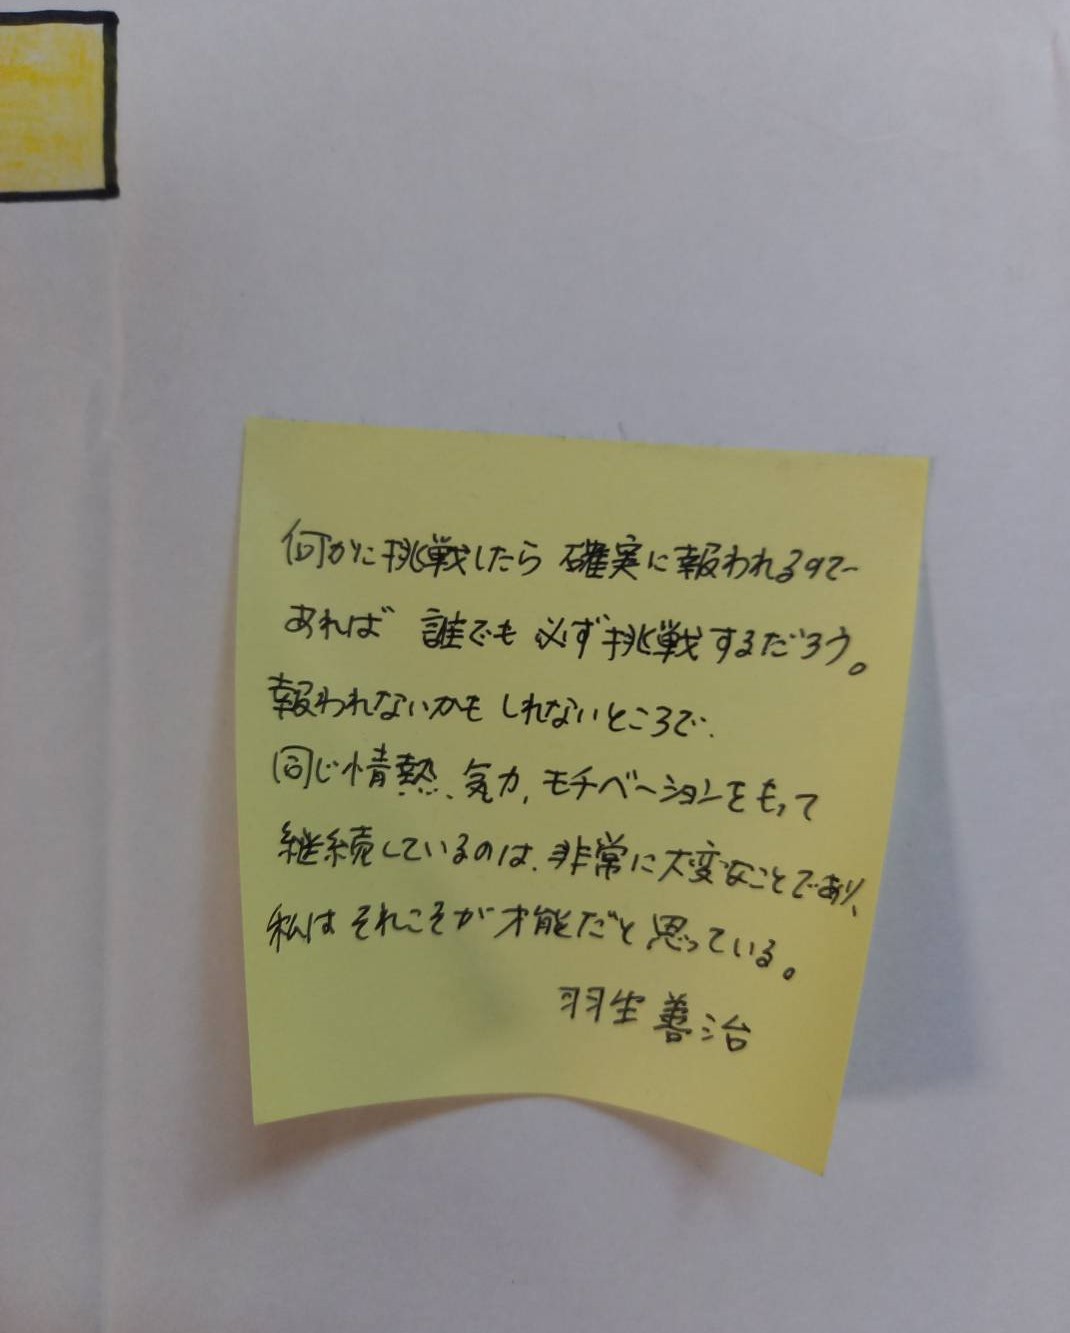 何かに挑戦したら 確実に報われるので
あれば 誰でも 必ず挑戦するだろう。
報われないかも しれないところで、
同じ情熱、気力、モチベーションをもって
継続しているのは、非常に大変なことであり、
私は それこそが 才能だと 思っている。
羽生 善治